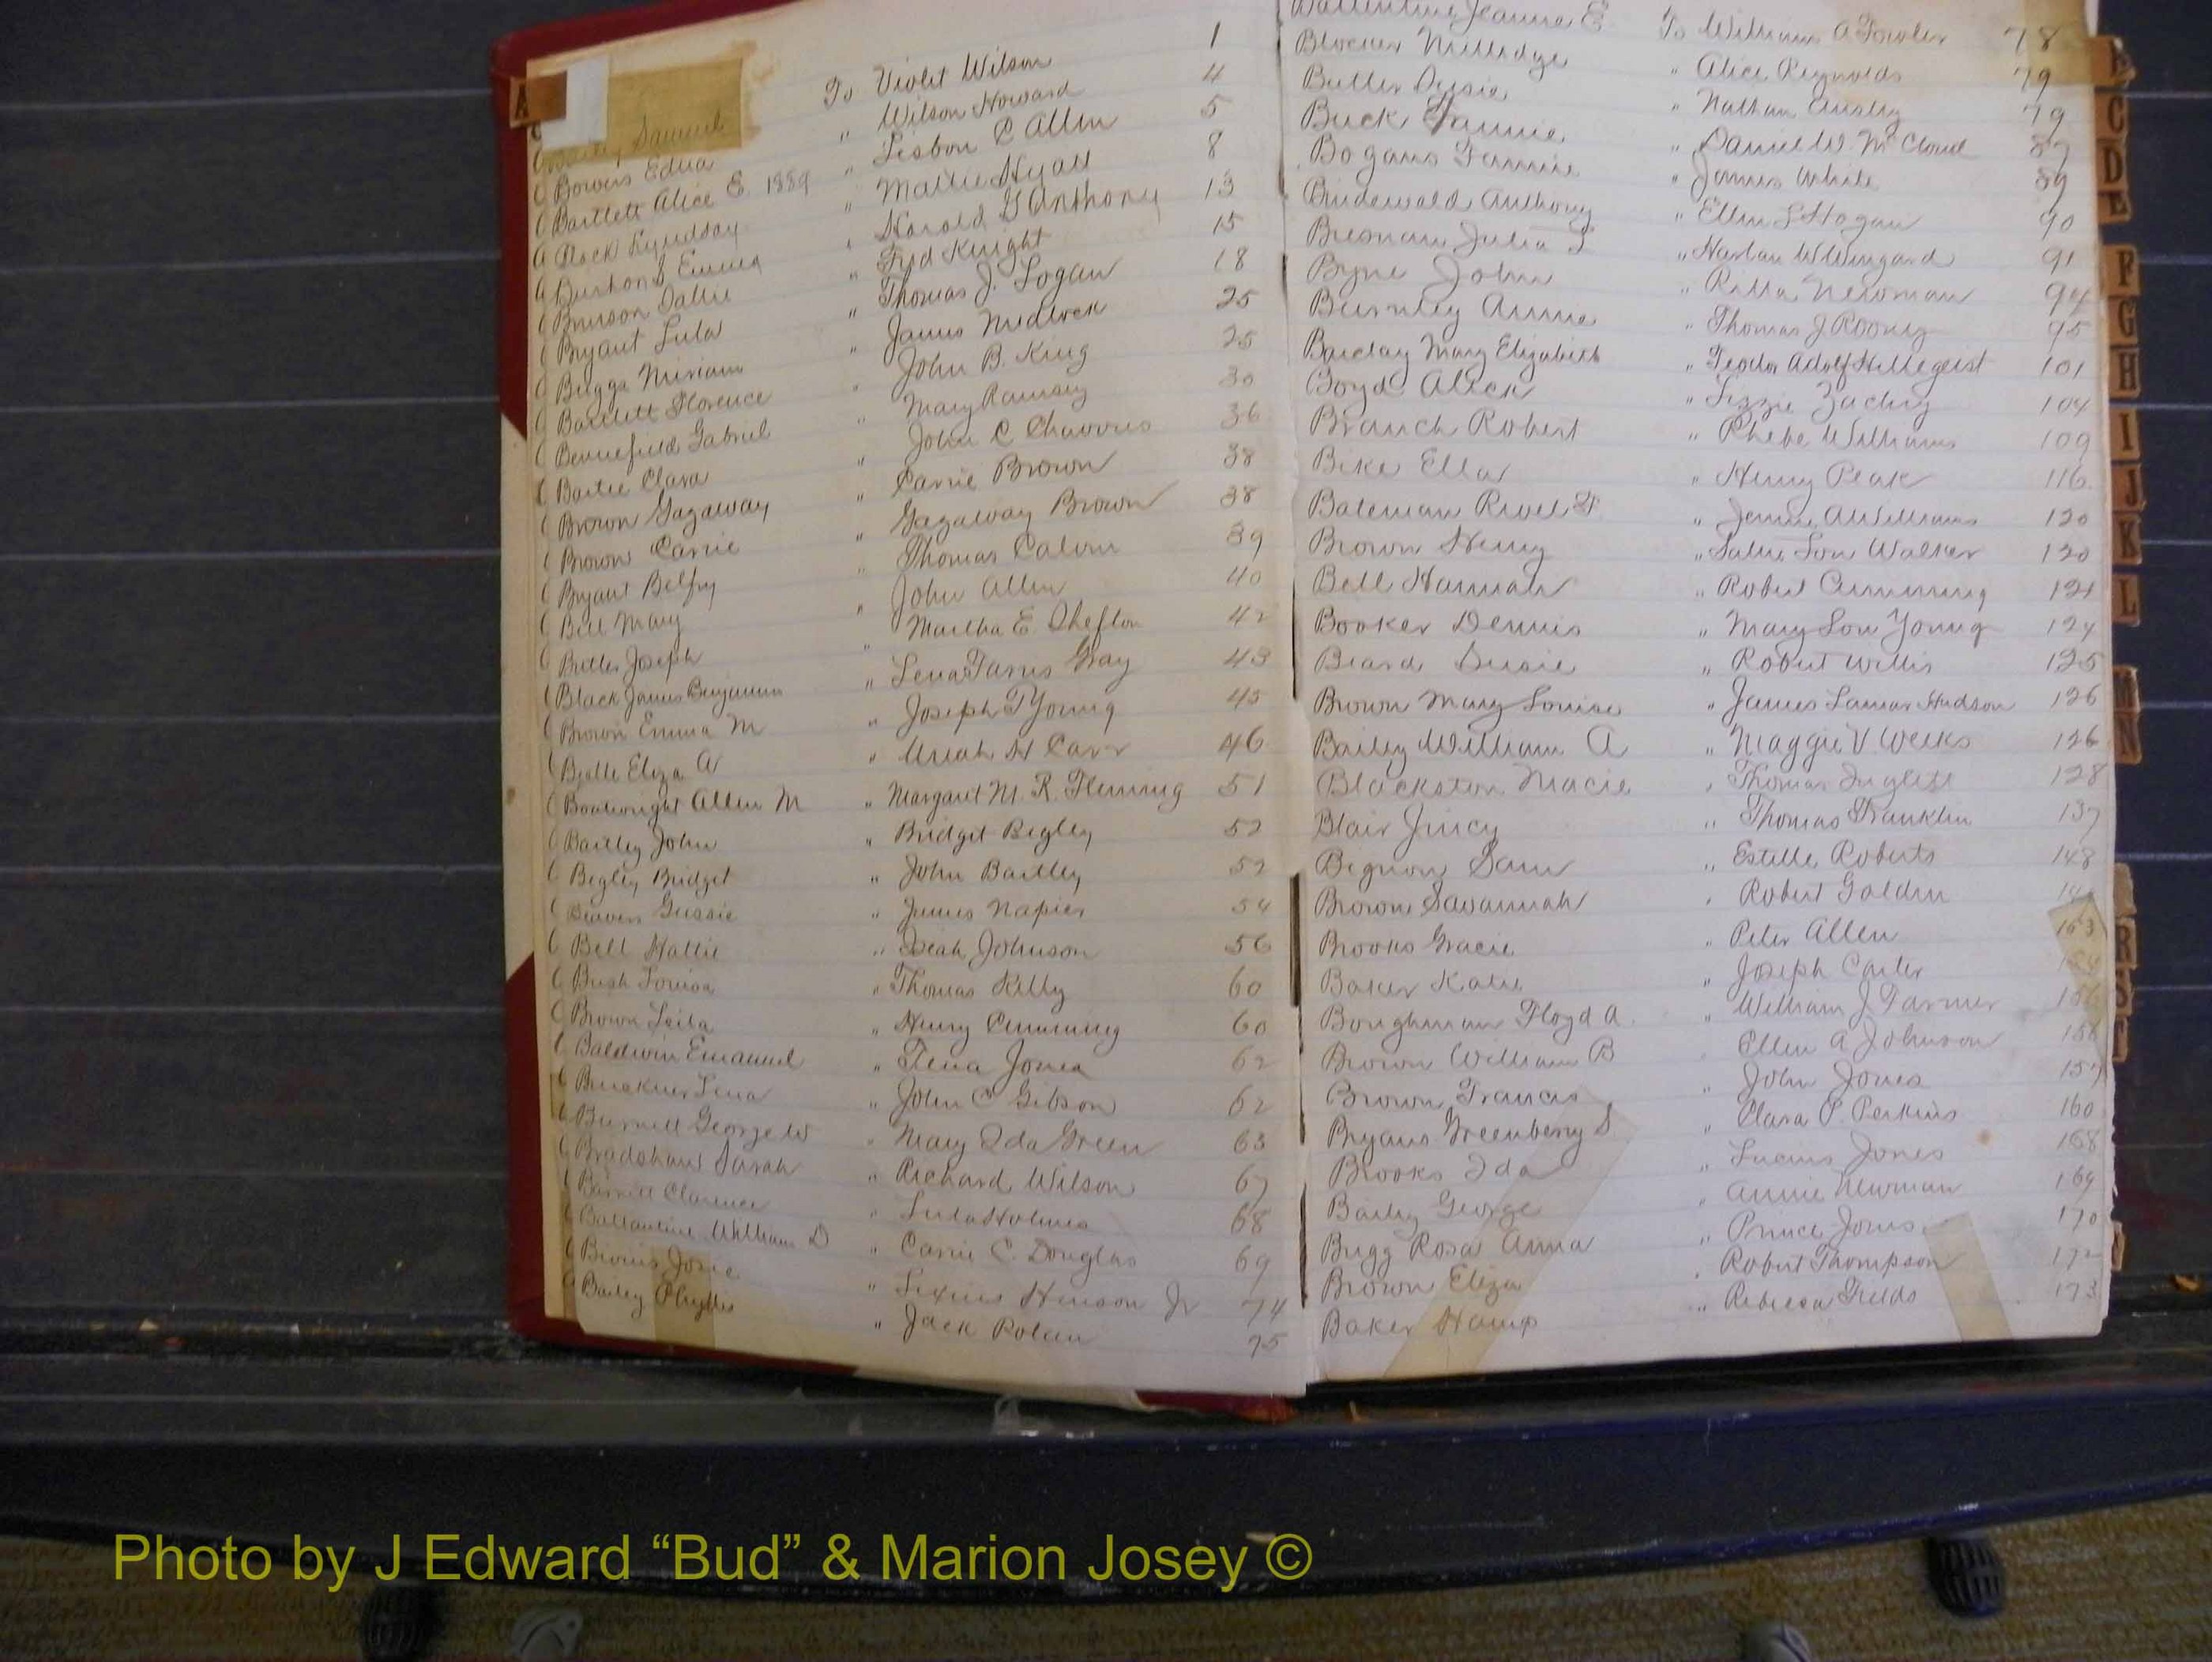 A
Samuel To Violet Wilson 1
Bowers Edna " Wilson Howard 4
Bartlett Alice E. 1889 " Lisbon C Allen 5
Lyndsay " Mattie Hyatt 8
Emma " Harold G Anthony 13
Brunson Sallie " Fred Knight 15
Bryant Lula " Thomas J. Logan 18
Buggs Miriam " James Medlock 25
Bartlett Florence " John B. King 25
Bennefield Gabriel " Mary Ramsey 30
Clara " John C 36
Brown Gazaway " Carrie Brown 38
Brown Carrie " Gazaway Brown 38
Bryant " Thomas 39
Bell Mary " John Allen 40
Butler Joseph " Martha E. 42
Black James Benjamin " Lena Gray 43
Brown Emma M " Joseph T Young 45
Eliza A " Uriah H Carr 46
Boatwright Allen M " Margaret M. R. Fleming 51
Bartley John " Bridget Begley 52
Begley Bridget " John Bartley 52
Gussie " James Napier 54
Bell Hattie " Isiah Johnson 56
Bush Louisa " Thomas Kelly 60
Brown Leila " Henry Cumming 60
Baldwin Emanuel " Jones 62
Lena " John C Gibson 62
Burnett George W " Mary Ida Green 63
Bradshaw Sarah " Richard Wilson 67
Barnett Clarence " Lula Holmes 68
Ballantine William D " Carrie C. Douglas 69
Josie " Henson Jr 74
Bailey Phyllis " Jack Polan 75
Ballentine Jeanne E. To William A Fowler 78
Blocker Milledge " Alice Reynolds 79
Butler " Nathan 79
Buck Fannie " Daniel W. McCloud 87
Bogans Fannie " James White 89
Anthony " Ellen L Hogan 90
Julia " Harlan W Wingard 91
Byne John " Rilla Newman 94
Burnley Annie " Thomas J Rooney 95
Barclay Mary Elizabeth " Adolf Hillegeist 101
Boyd Alick " Lizzie Zachry 104
Branch Robert " Phebe Williams 109
Bike Ella " Henry Peak 116
Bateman " Jennie A Williams 120
Brown Henry " Sallie Lou Walker 120
Bell Hannah " Robert Cumming 121
Booker Dennis " Mary Lou Young 124
Beard Susie " Robert Willis 125
Brown Mary Louise " James Lamar Hudson 126
Bailey William A " Maggie V. Weeks 126
Blackston Macie " Thomas 128
Blair Jincy " Thomas Franklin 137
Bignon Sam " Estelle Roberts 148
Brown Savannah " Robert Golden
Brooks Gracie " Peter Allen 153
Baker Katie " Joseph Carter
Boughman Floyd A. " William J. Farmer 156
Brown William B " Ellen A Johnson 156
Brown Francis " John Jones 157
Bryans Greenberry S " Clara P. Perkins 160
Brooks Ida " Lucius Jones 168
Bailey George " Annie Newman 169
Bugg Rosa Anna " Prince Jones 170
Brown Eliza " Robert Thompson 172
Baker Hamp " Rebecca Fields 173
C
D
E
F
G
H
I
J
K
L
M
N
R
S
Photo by J Edward “Bud” & Marion Josey ©